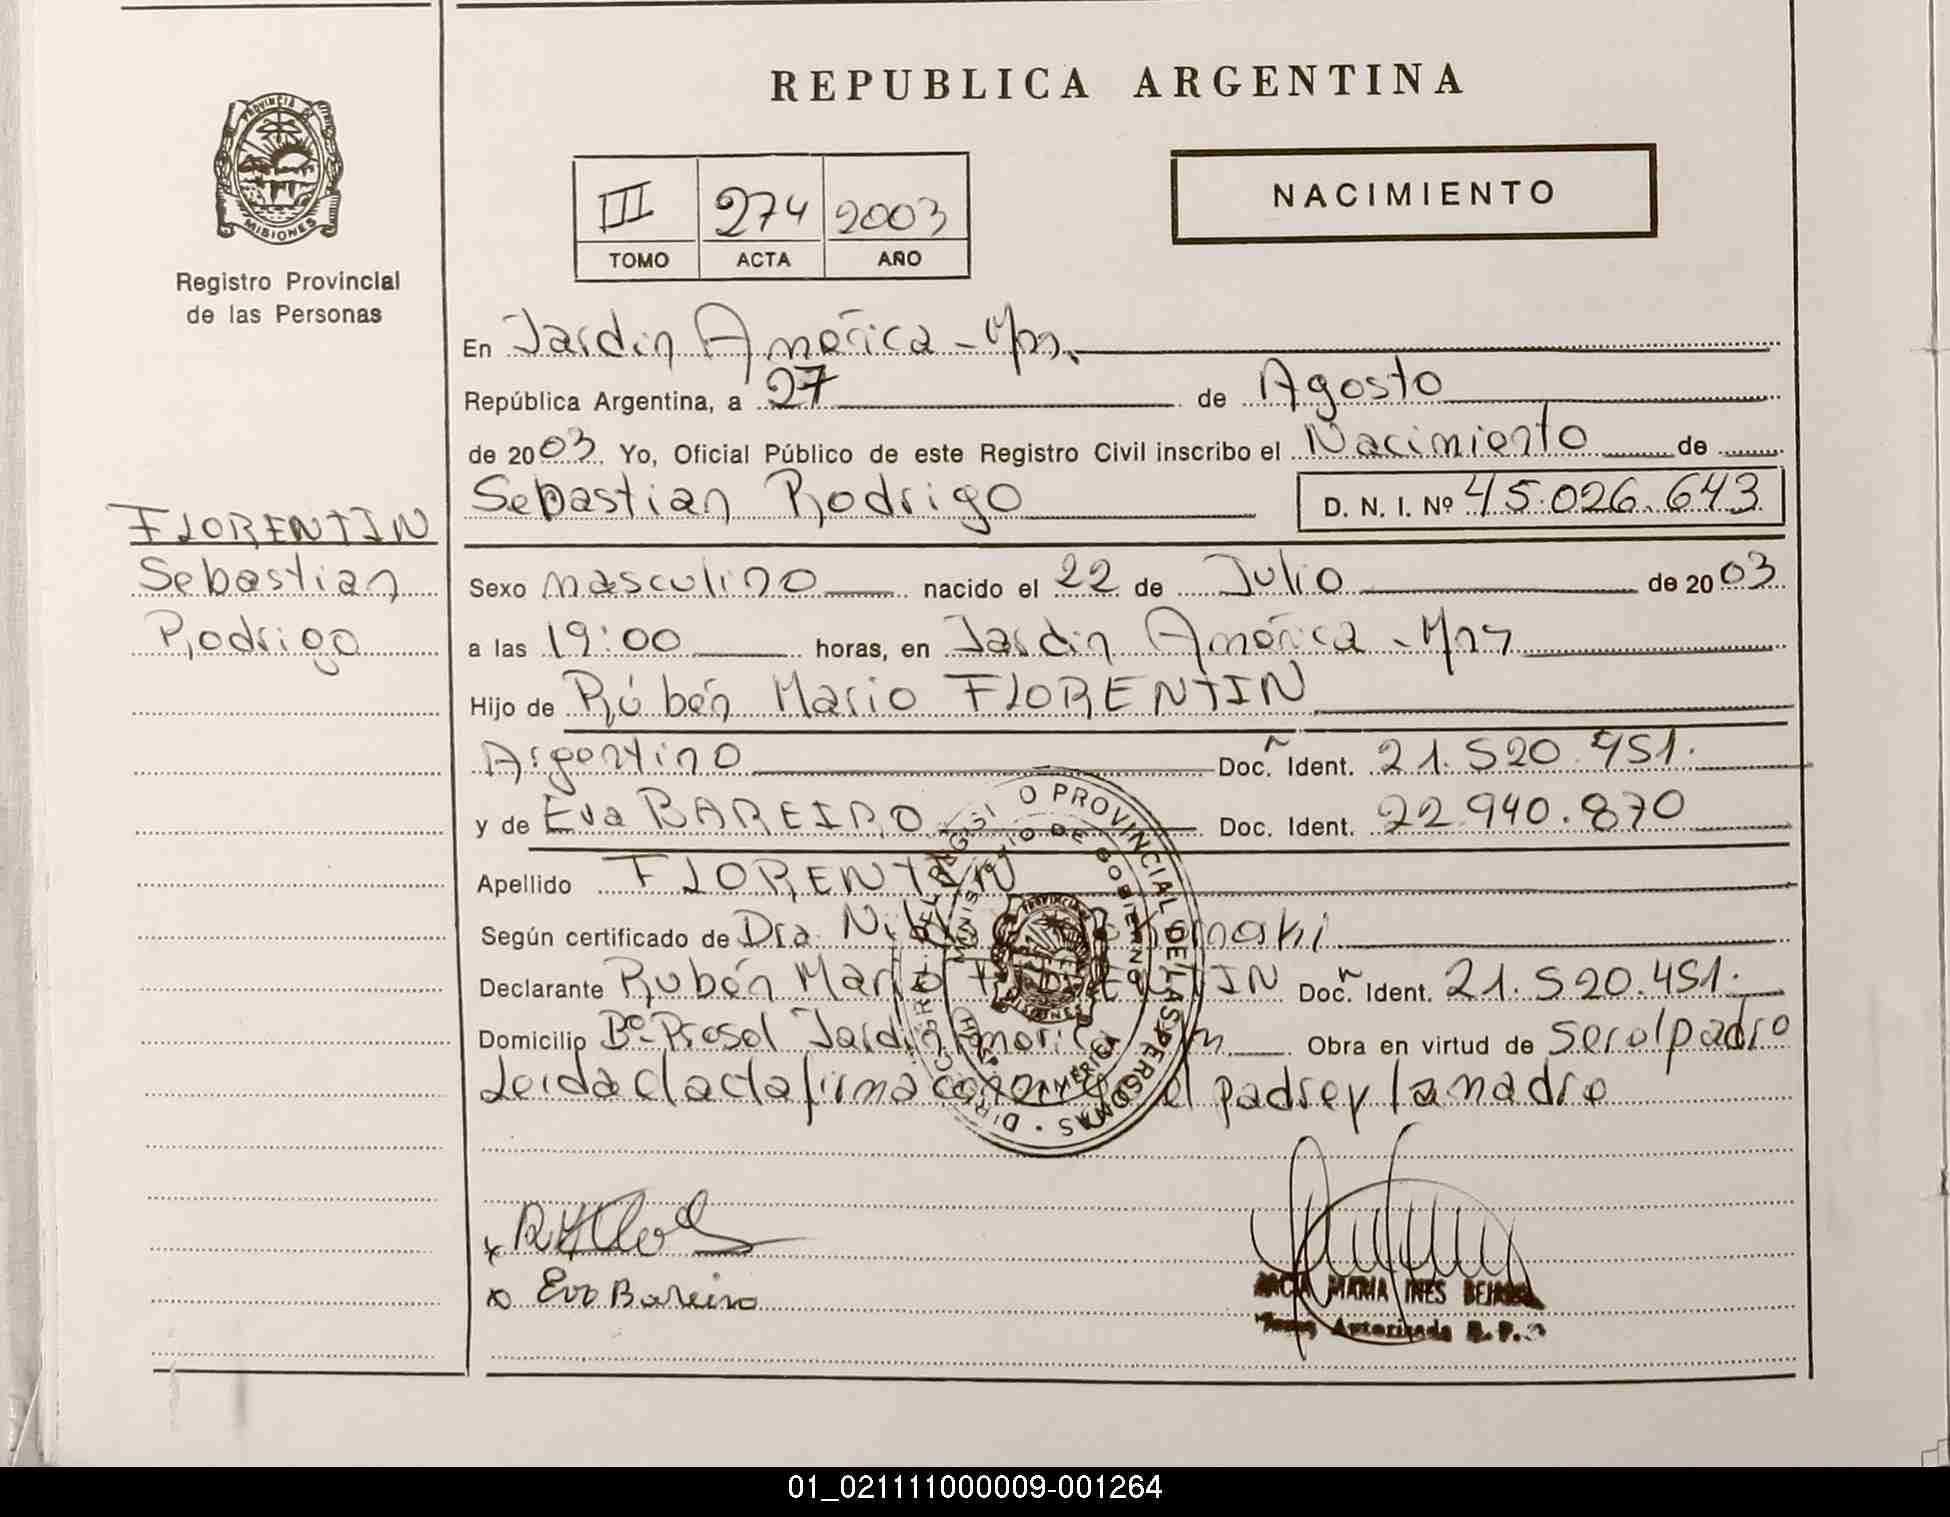 REPUBLICA ARGENTINA
PROVINCIA DE
MISIONES
Registro Provincial
de las Personas
III 274 2003
TOMO ACTA AÑO
NACIMIENTO
En Jardin América - Mns.
República Argentina, a 27 de Agosto
de 2003. Yo, Oficial Público de este Registro Civil inscribo el Nacimiento de
Sebastian Rodrigo D. N. I. Nº 45.026.643
FLORENTIN
Sebastian
Rodrigo
Sexo masculino nacido el 22 de Julio de 2003
a las 19:00 horas, en Jardin América - Mns
Hijo de Rúbén Mario FLORENTIN
Argentino Doc. Ident. 21.520.451.
y de Eva BAREIRO Doc. Ident. 22.940.870
Apellido FLORENTIN
Según certificado de Dra.
Declarante Rubén Mario FLORENTIN Doc. Ident. 21.520.451.
Domicilio Bº Prosol Jardin América Obra en virtud de ser el padre
Leida el acta firma el padre y la madre
Eva Bareiro
MARIA INES
Autorizada R. P.
01_021111000009-001264